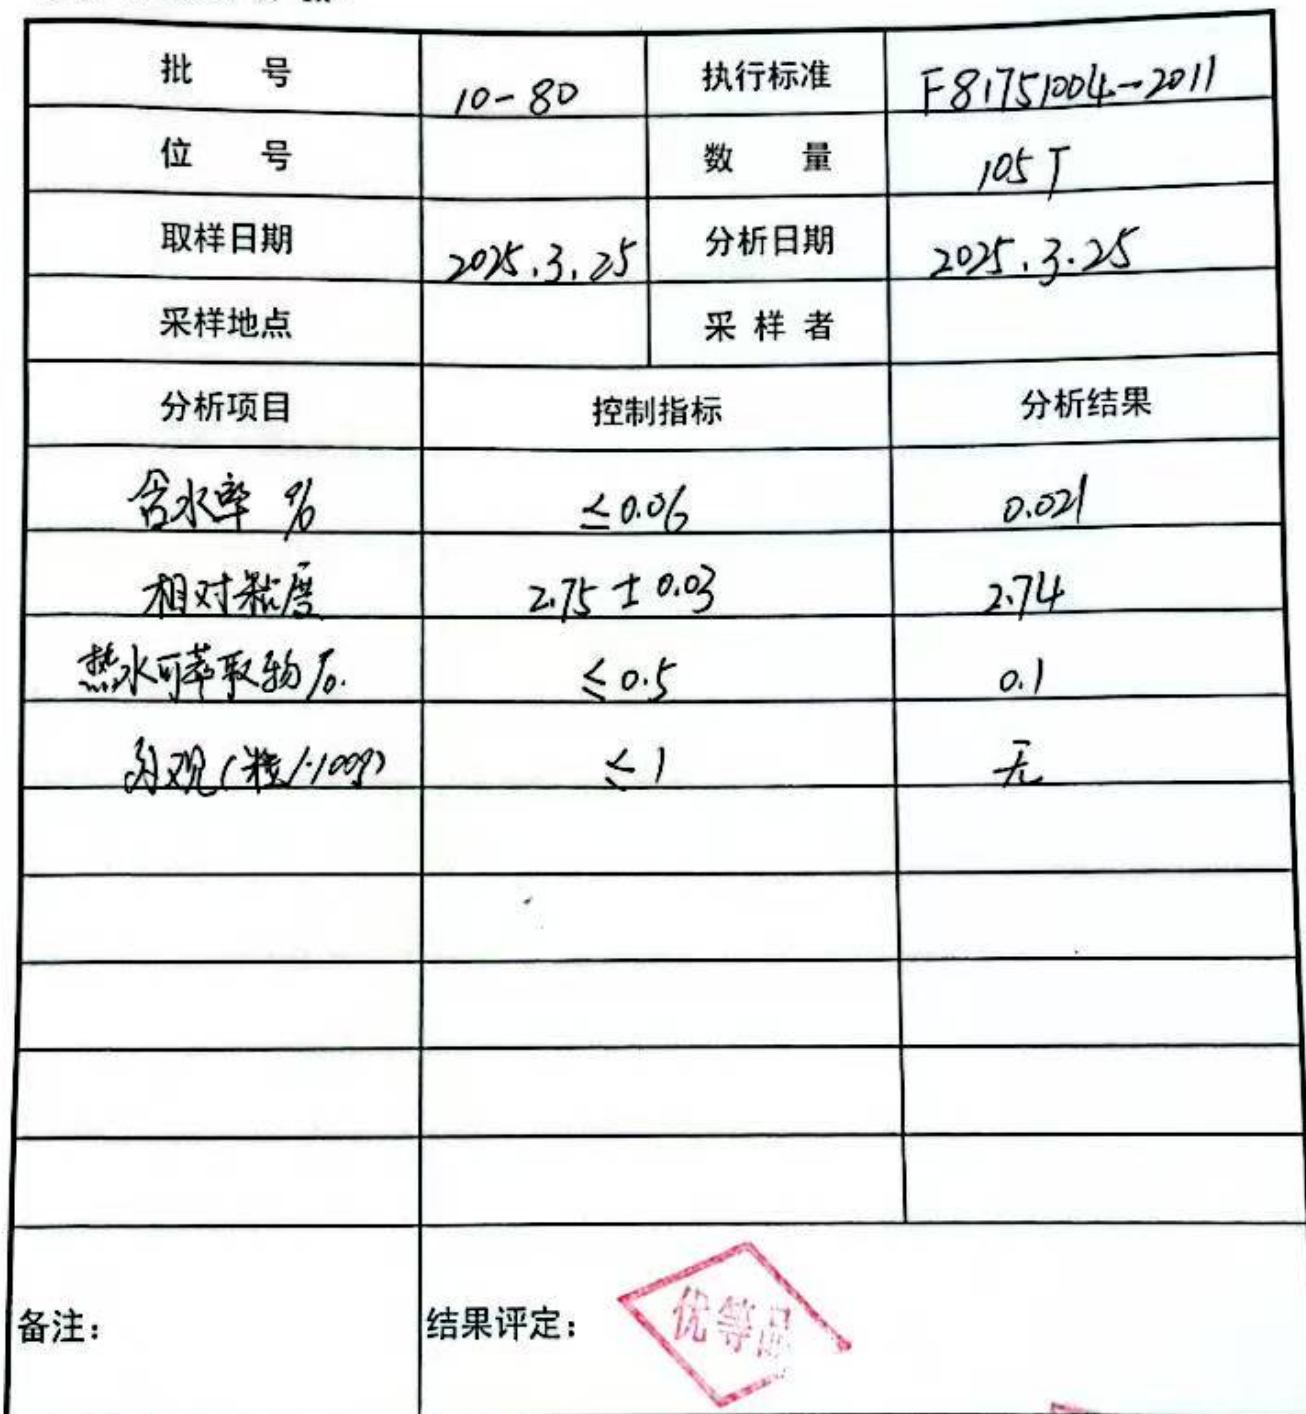 批 号 10-80 执行标准 F81751004-2011
位 号 数 量 105T
取样日期 2025.3.25 分析日期 2025.3.25
采样地点 采 样 者
分析项目 控制指标 分析结果
含水率 % ≤0.06 0.021
相对粘度 2.75±0.03 2.74
热水可萃取物%. ≤0.5 0.1
外观(粒/100g) ≤1 无
备注: 结果评定: 优等品